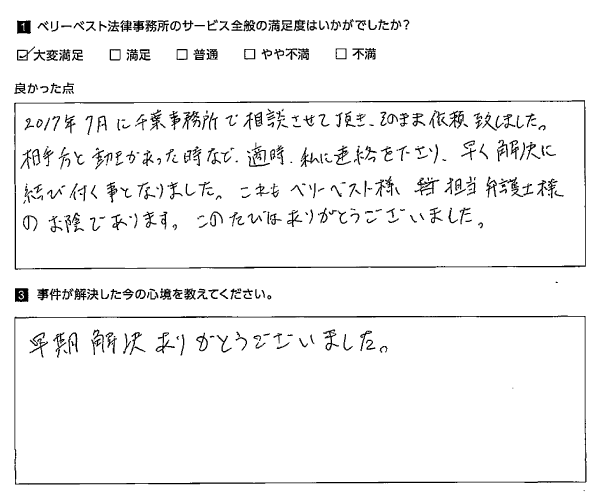 1 ベリーベスト法律事務所のサービス全般の満足度はいかがでしたか?
☑大変満足 □満足 □普通 □やや不満 □不満
良かった点
2017年7月に千葉事務所で相談させて頂き、そのまま依頼致しました。
相手方と動きがあった時など、適時、私に連絡を下さり、早く解決に
結び付く事となりました。これもベリーベスト様、担当弁護士様
のお陰であります。このたびはありがとうございました。
3 事件が解決した今の心境を教えてください。
早期解決ありがとうございました。